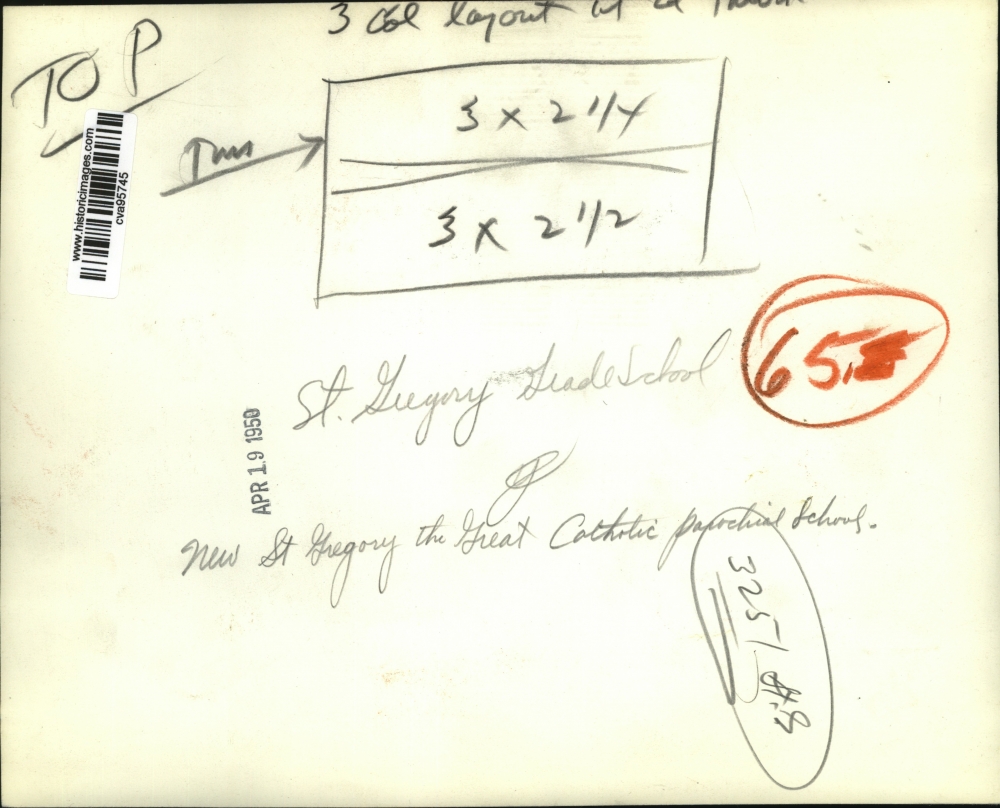 3 Col layout
TOP
www.historicimages.com
cva95745
3 x 2 1/4
3 x 2 1/2
65.
St. Gregory Grade School
APR 19 1950
New St Gregory the Great Catholic parochial School.
3251